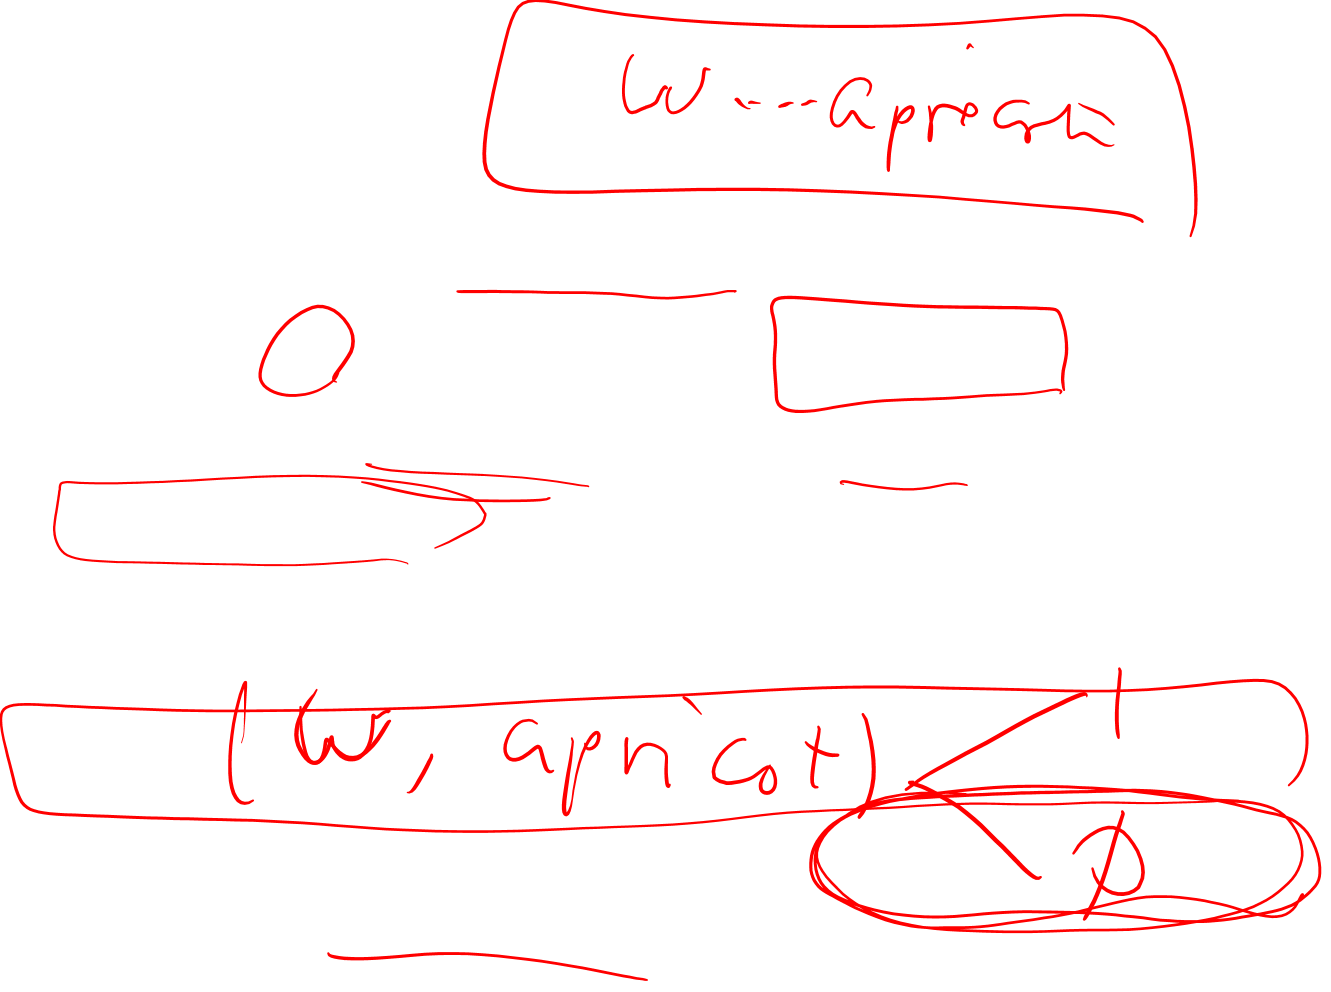 W ---- apricot
(W, apricot) 1
0